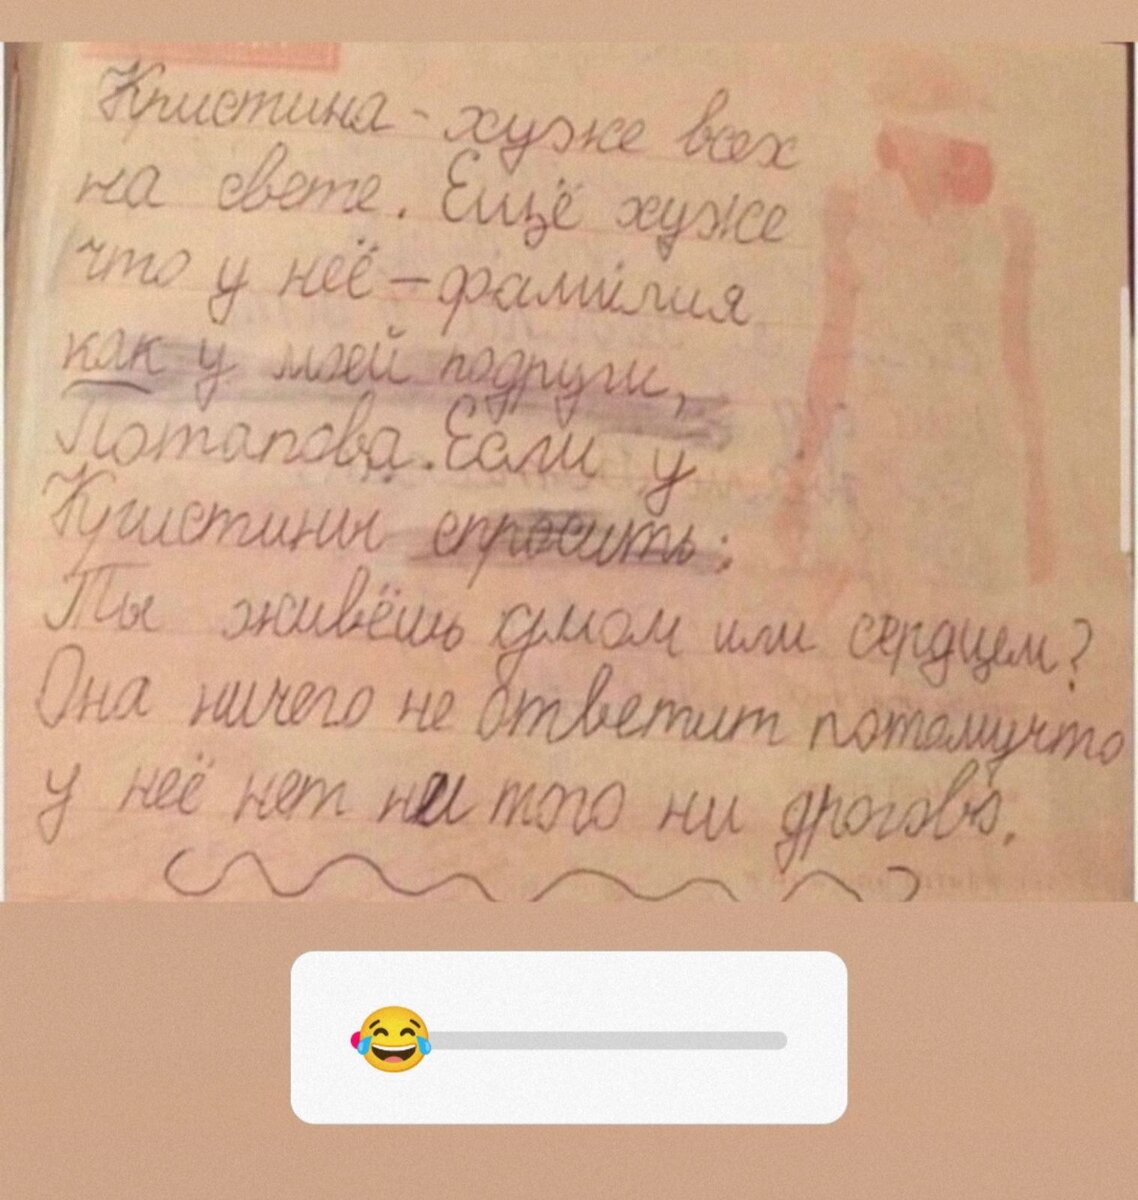 Кристина - хуже всех
на свете. Ещё хуже
что у неё - фамилия
как у моей подруги,
Потапова. Если у
Кристины спросить:
Ты живёшь умом или сердцем?
Она ничего не ответит потомучто
у неё нет ни того ни дрогова.